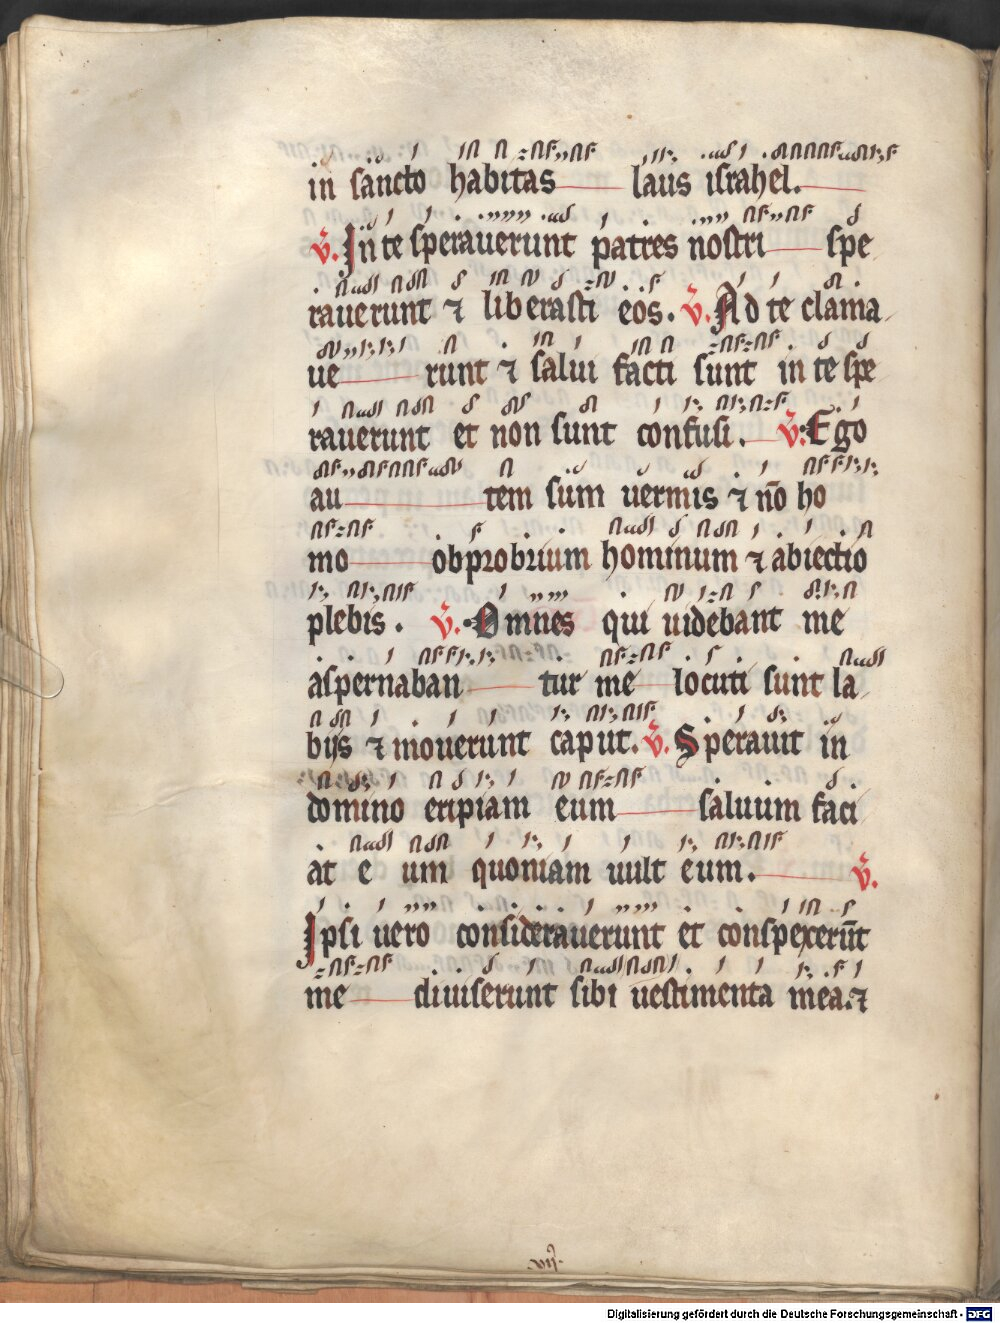 in sancto habitas laus israhel.
v. In te sperauerunt patres nostri spe
rauerunt ⁊ liberasti eos. v. Ad te clama
ue runt ⁊ salui facti sunt in te spe
rauerunt et non sunt confusi. v. Ego
au tem sum uermis ⁊ nō ho
mo obprobrium hominum ⁊ abiectio
plebis. v. Omnes qui uidebant me
aspernaban tur me locuti sunt la
bijs ⁊ mouerunt caput. v. Sperauit in
domino eripiam eum saluum faci
at e um quoniam uult eum. v.
Ipsi uero considerauerunt et conspexerūt
me diuiserunt sibi uestimenta mea. ⁊
.vij.
Digitalisierung gefördert durch die Deutsche Forschungsgemeinschaft - DFG